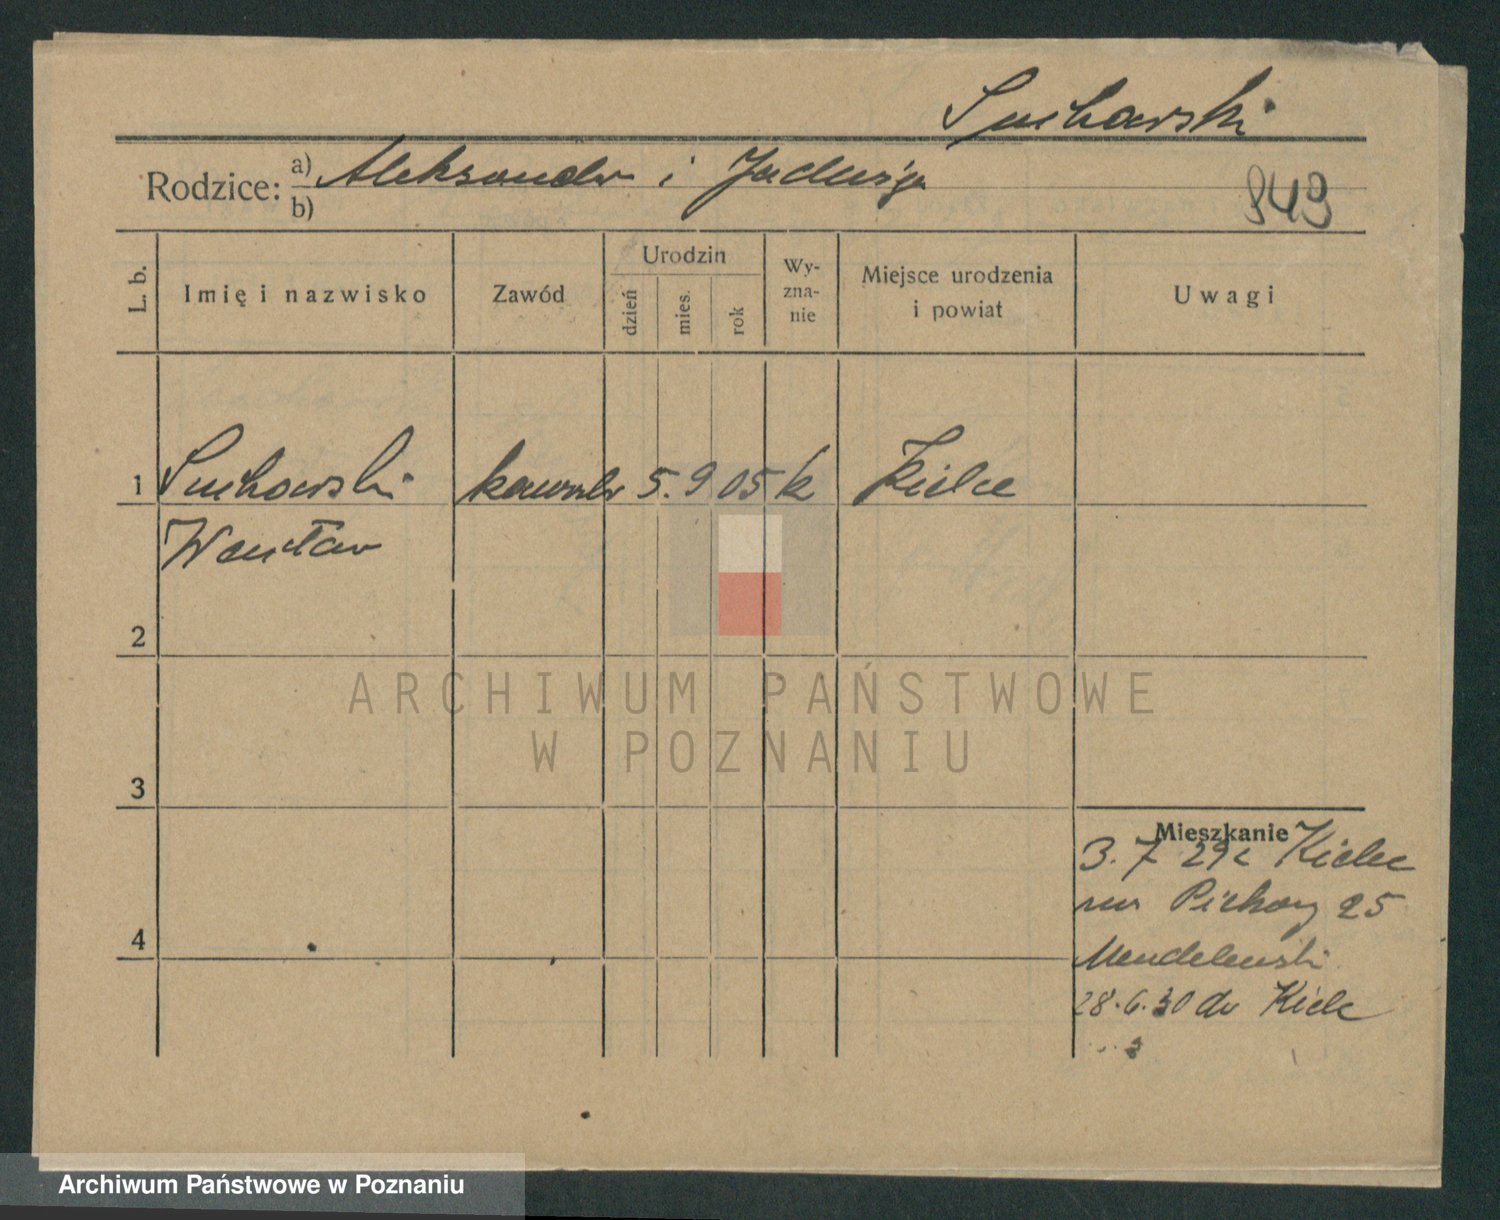 Suchowski
Rodzice: a) Aleksander i Jadwiga
b)
949
L. b.
Imię i nazwisko
Zawód
Urodzin
dzień
mies.
rok
Wy-
zna-
nie
Miejsce urodzenia
i powiat
Uwagi
1 Suchowski kowal 5. 9 05 k Kielce
Wacław
2
3
4
Mieszkanie
3. 7 29 z Kielc
Piekary 25
28.6.30 do Kielc
ARCHIWUM PAŃSTWOWE
W POZNANIU
Archiwum Państwowe w Poznaniu